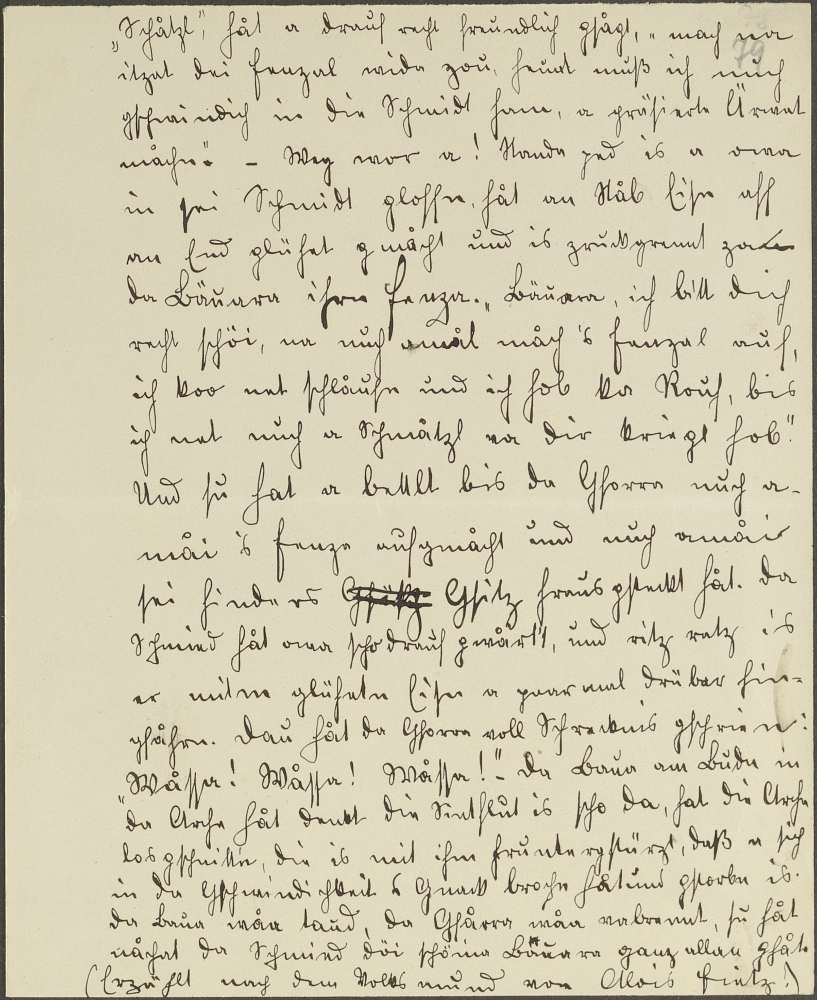 „Schåtzl", håt a drauf recht freundlich gsågt, „mach na
79
itzat dei Fenzal wida zou, heunt muß ich nuch
gschwindich in die Schmidt ham, a präsierte Ärwat
måchn." – Weg wor a! Standa ped is a owa
in sei Schmidt gloffn, håt an Ståb Eisn aff
an End glühat gmåcht und is zruckgrennt za
da Bäuara ihrn Fenza. „Bäuara, ich bitt dich
recht schöi, na nuch amål måch 's Fenzal auf,
ich koo net schlåufn und ich hob ka Rouh, bis
ich net nuch a Schmåtzl va dir kriegt hob."
Und su hat a bettlt bis da Ghorra nuch a-
måi 's Fenza aufgmåcht und nuch amåi
sei hinders Gsitz hraus gsteckt håt. Da
Schmied håt owa scho drauf gwårt't, und ritz ratz is
er mitn glühatn Eisn a paarmal drüber hin-
gfåhrn. Dau håt da Ghorra voll Schrecknis gschrien:
"Wåssa! Wåssa! Wåssa!" – Da Baua am Budn in
da Archn håt denkt die Sintflut is scho da, hat die Archn
losgschnittn, die is mit ihm hruntergstürzt, daß a sich
in da Gschwindichkeit s Gnack brochn håt und gstorbn is.
Da Baua wåa taud, da Ghårra wåa vabrennt, su håt
nåchat da Schmied döi schöina Bäuara ganz allan ghåt.
(Erzählt nach dem Volksmund von Alois Fietz!)